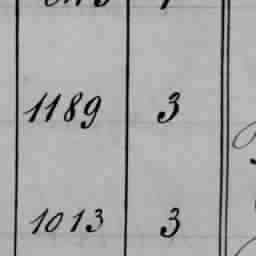 1189 3
1013 3